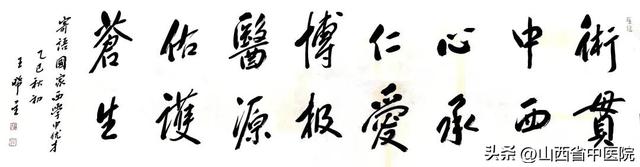 術貫
中西
心承
仁愛
博极
醫源
佑護
蒼生
寄語國家西學中优才
乙巳秋初
王晞星
头条 @山西省中医院